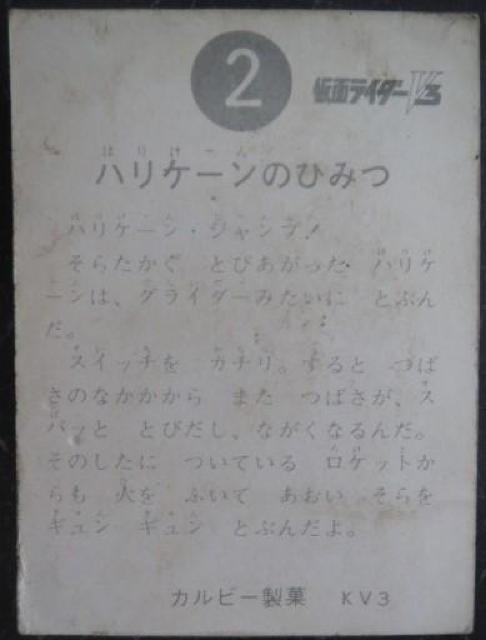 2
仮面ライダーV3
ハリケーンのひみつ
ハリケーン・ジャンプ!
そらたかく とびあがった ハリケ
ーンは、グライダーみたいに とぶん
だ。
スイッチを カチリ。すると つば
さのなかから また つばさが、ス
パッと とびだし、ながくなるんだ。
そのしたに ついている ロケットか
らも 火を ふいて あおい そらを
ギュン ギュン とぶんだよ。
カルビー製菓 KV3